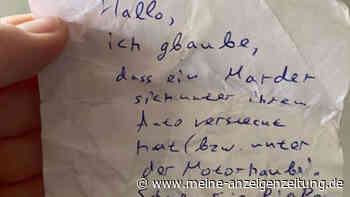 Hallo,
ich glaube,
dass ein Marder
sich unter ihrem
Auto versteckt
hat (bzw. unter
der Motorhaube).
www.meine-anzeigenzeitung.de